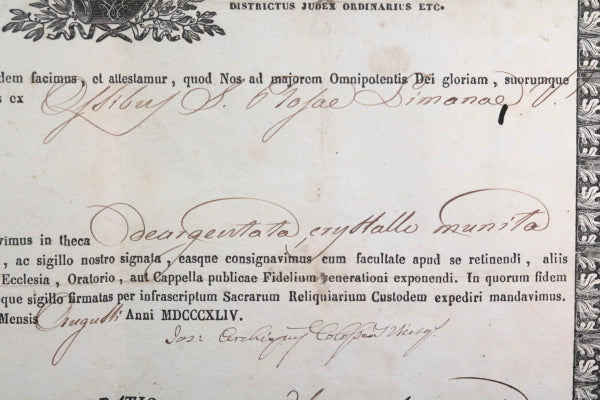 DISTRICTUS JUDEX ORDINARIUS ETC.
dem facimus, et attestamur, quod Nos ad majorem Omnipotentis Dei gloriam, suorumque
s ex Ossibus S. Rosae Limanae, V.
vimus in theca deargentata, crystallo munita
, ac sigillo nostro signata, easque consignavimus cum facultate apud se retinendi, aliis
Ecclesia, Oratorio, aut Cappella publicae Fidelium venerationi exponendi. In quorum fidem
que sigillo firmatas per infrascriptum Sacrarum Reliquiarium Custodem expediri mandavimus.
Mensis Augusti Anni MDCCCXLIV.
Jos: